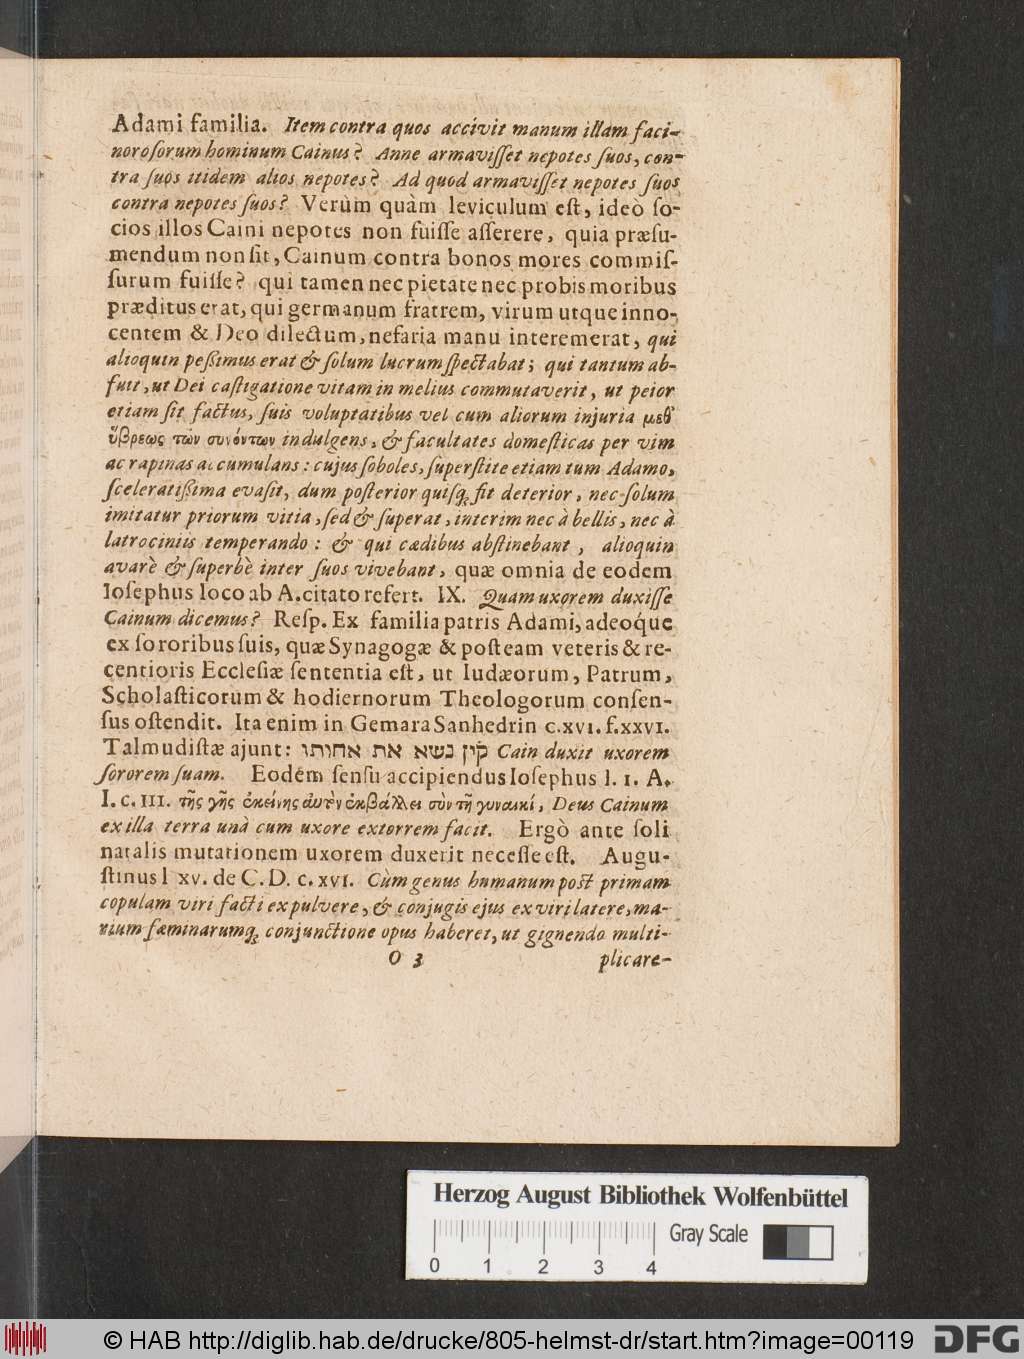 Adami familia. Item contra quos accivit manum illam faci-
noroſorum hominum Cainus? Anne armaviſſet nepotes ſuos, con-
tra ſuos itidem alios nepotes? Ad quod armaviſſet nepotes ſuos
contra nepotes ſuos? Verùm quàm leviculum eſt, ideò ſo-
cios illos Caini nepotes non fuiſſe aſſerere, quia præſu-
mendum non ſit, Cainum contra bonos mores commiſ-
ſurum fuiſſe? qui tamen nec pietate nec probis moribus
præditus erat, qui germanum fratrem, virum utque inno-
centem & Deo dilectum, nefaria manu interemerat, qui
alioquin peſſimus erat & ſolum lucrum ſpectabat; qui tantum ab-
fuit, ut Dei caſtigatione vitam in melius commutaverit, ut peior
etiam ſit factus, ſuis voluptatibus vel cum aliorum injuria μεθ᾽
ὕβρεως τῶν συνόντων indulgens, & facultates domeſticas per vim
ac rapinas accumulans: cujus ſoboles, ſuperſtite etiam tum Adamo,
ſceleratiſſima evaſit, dum poſterior quiſq; fit deterior, nec ſolum
imitatur priorum vitia, ſed & ſuperat, interim nec à bellis, nec à
latrociniis temperando: & qui cædibus abſtinebant, alioquin
avarè & ſuperbè inter ſuos vivebant, quæ omnia de eodem
Ioſephus loco ab A. citato refert. IX. Quam uxorem duxiſſe
Cainum dicemus? Reſp. Ex familia patris Adami, adeoque
ex ſororibus ſuis, quæ Synagogæ & poſteam veteris & re-
centioris Eccleſiæ ſententia eſt, ut Iudæorum, Patrum,
Scholaſticorum & hodiernorum Theologorum conſen-
ſus oſtendit. Ita enim in Gemara Sanhedrin c. XVI. f. XXVI.
Talmudiſtæ ajunt: קין נשא את אחותו Cain duxit uxorem
ſororem ſuam. Eodem ſenſu accipiendus Ioſephus l. 1. A.
I. c. III. τῆς γῆς ἐκείνης αὐτὸν ἐκβάλλει σὺν τῇ γυναικί, Deus Cainum
ex illa terra unà cum uxore extorrem facit. Ergò ante ſoli
natalis mutationem uxorem duxerit neceſſe eſt. Augu-
ſtinus l XV. de C. D. c. XVI. Cùm genus humanum poſt primam
copulam viri facti ex pulvere, & conjugis ejus ex viri latere, ma-
rium fæminarumq; conjunctione opus haberet, ut gignendo multi-
O 3 plicare-
Herzog August Bibliothek Wolfenbüttel
Gray Scale
0 1 2 3 4
© HAB http://diglib.hab.de/drucke/805-helmst-dr/start.htm?image=00119
DFG